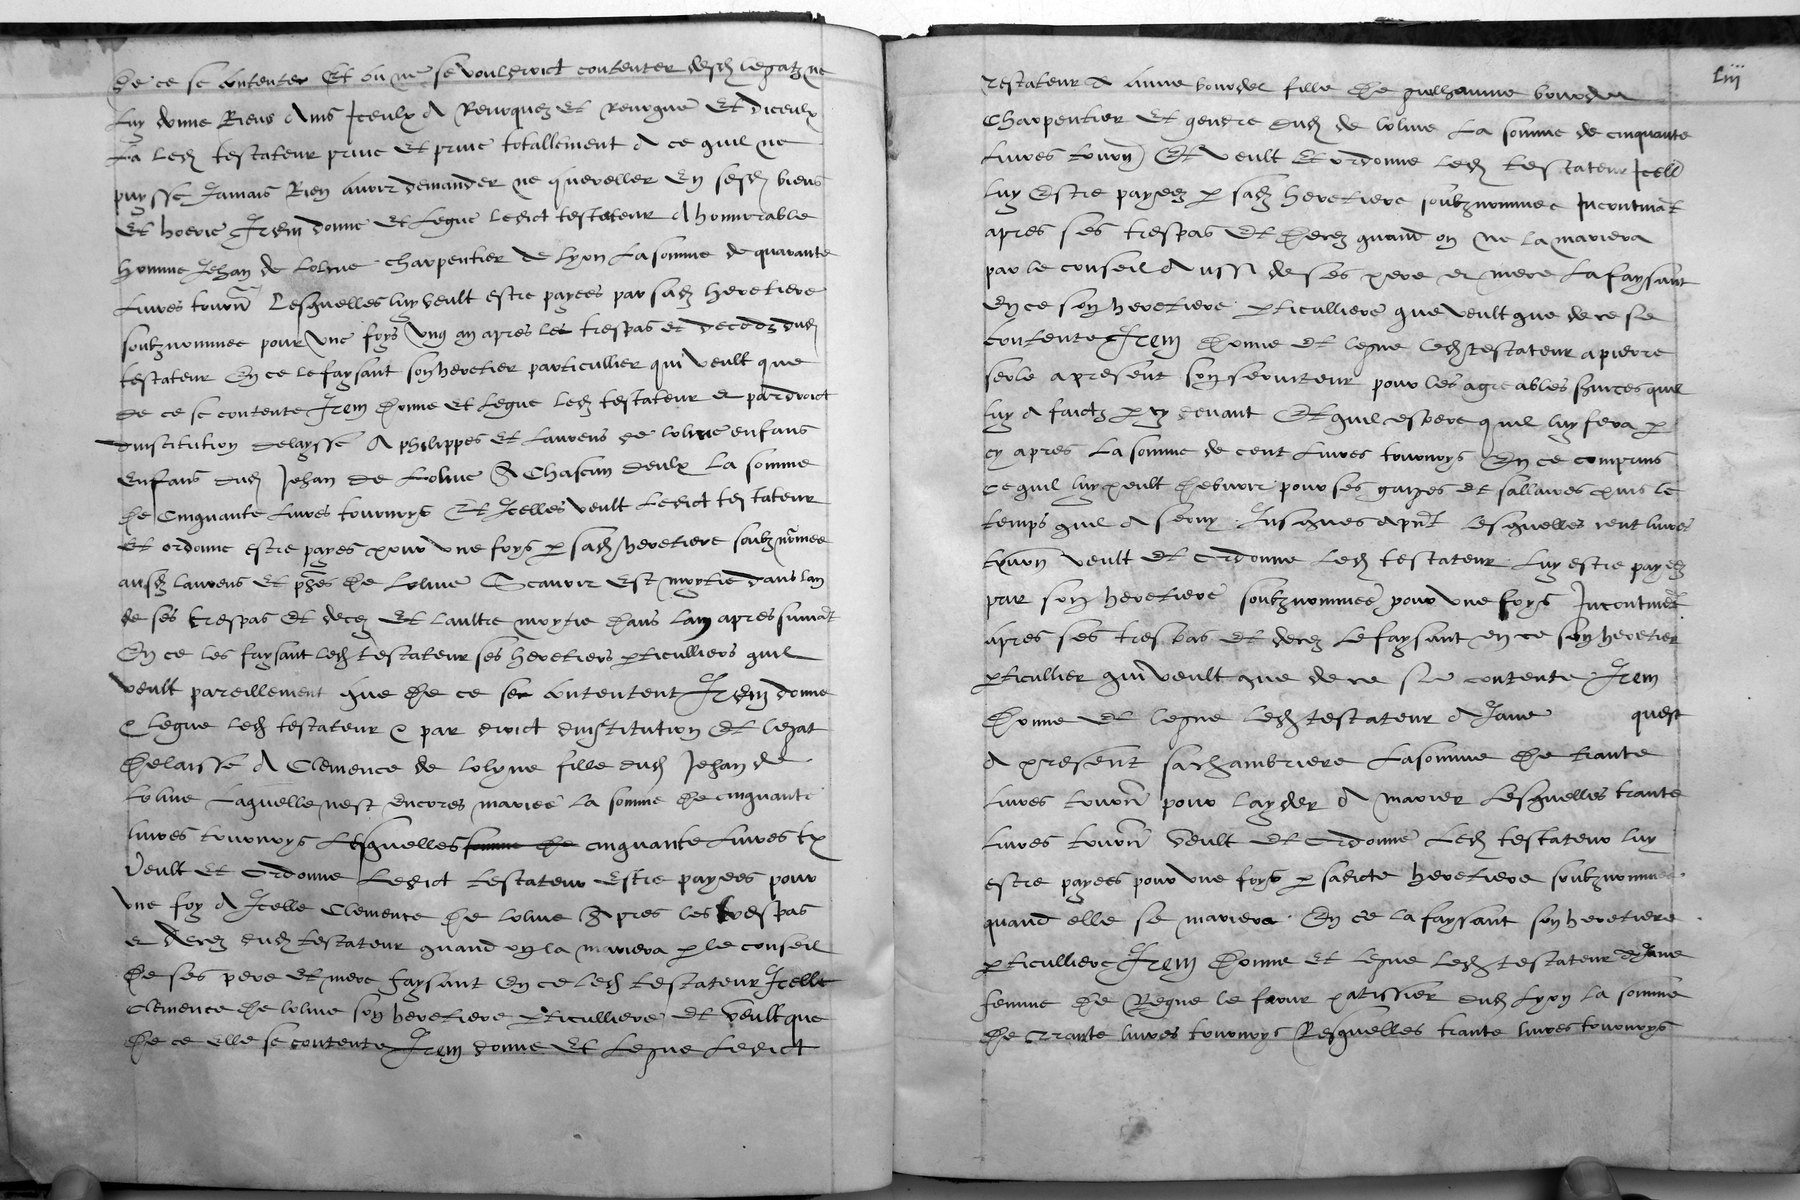 de ce se contenter Et ou ne se vouldroict contenter desd legatz ne
luy donne Riens Ains Iceulx A Revoquez Et Revoque Et diceulx
La led testateur prive Et prive totallement A ce quil ne
puysse Jamais Rien avoir demander ne quereller En sesd biens
Et hoerie Item donne Et legue ledict testateur A honnorable
homme Jehan de Lolme charpentier de Lyon La somme de quarante
Livres tourn Lesquelles luy veult estre payees par sad heretiere
soubznommee pour une foys ung an apres les trespas et decedz dud
testateur En ce le faysant son heretier particullier qui veult que
de ce se contente Item donne Et legue led testateur et par droict
dinstitution delaysse A philippes Et Laurens de Lolme enfans
enfans dud Jehan de Lolme A Chascun deulx La somme
de Cinquante Livres tournoys Et Icelles veult Ledict testateur
Et ordonne estre payes pour une foys p sad heretiere soubznommee
ausd laurens et phes de Lolme Scavoir est moytie dans lan
de ses trespas et decez Et laultre moytie dans lan apres suivat
En ce les faysant led testateur ses heretiers pticulliers quil
veult pareillement que de ce se contentent Item donne
& legue led testateur & par droict dinstitution Et legat
delaisse A Clemence de Lolme fille dud Jehan de
Lolme Laquelle nest encores mariee la somme de cinquante
livres tournoys Lesquelles somme de cinquante Livres tz
Veult Et Ordonne Ledict testateur Estre payees pour
une foy A Icelle Clemence de Lolme Apres les trespas
et decez dud testateur quand on la mariera p le conseil
de ses pere et mere faysant En ce led testateur Icelle
Clemence de Lolme son heretiere pticulliere et veult que
de ce elle se contente Item donne Et Legue Ledict
Liii
testateur A Anne bourdel fille de guillaume bourdel
Charpentier Et gendre dud de Lolme La somme de cinquante
Livres tourn Et veult Et ordonne led testateur Icell
luy Estre payeez p sad heretiere soubznommee Incontinat
apres ses trespas Et decez quand on ne la mariera
par le conseil Aussi de ses pere et mere La faysant
En ce son heretiere pticulliere que veult que de ce se
contente Item donne Et legue led testateur a pierre
seole a present son serviteur pour les agreables services quil
luy A faictz p cy devant Et quil espere quil luy fera p
cy apres La somme de cent Livres tournoys En ce comprins
ce quil luy peult debvoir pour ses gaiges et sallaires puis le
temps quil A servy Jusques apnt lesquelles cent livres
tourn veult et ordonne led testateur luy estre payeez
par son heretiere soubznommee pour une foys Incontinet
apres ses trespas Et decez Le faysant en ce son heretier
pticullier qui veult que de ce se contente Item
donne et legue led testateur A Jane quest
A present sa chambriere La somme de trante
livres tourn pour layder A marier Lesquelles trante
livres tourn veult et ordonne Led testateur luy
estre payees pour une foys p sadicte heretiere soubznommee
quand elle se mariera En ce la fayssant son heretiere
pticulliere Item donne Et legue led testateur A Jane
femme de Regne le faour patissier dud Lyon la somme
de trante livres tournoys Lesquelles trante livres tournoys